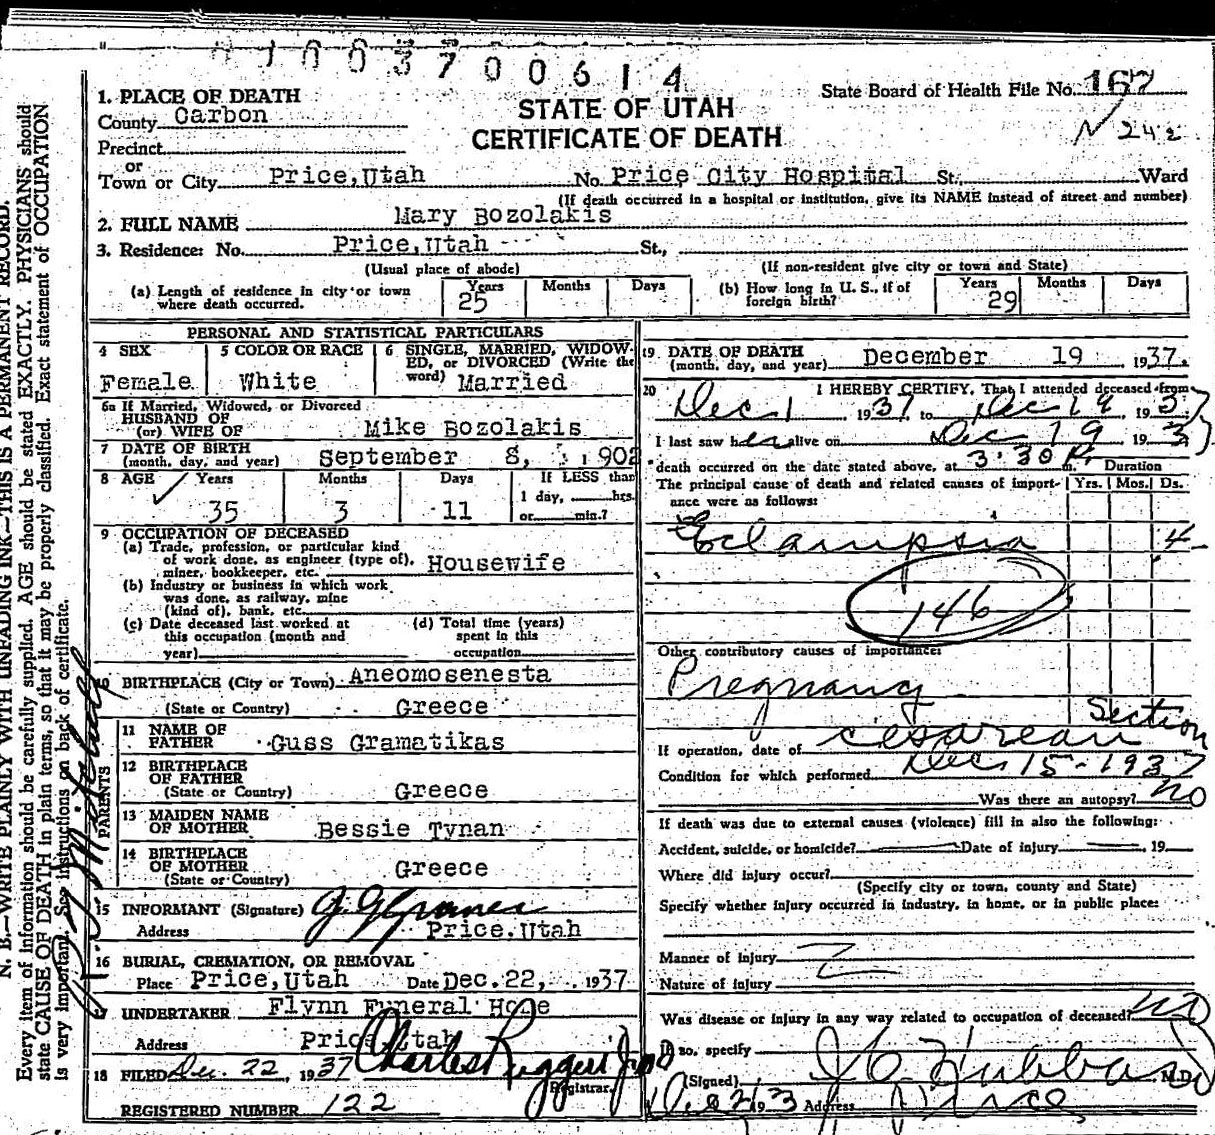 0 1 0 0 3 7 0 0 6 1 4
State Board of Health File No. 167
N 242
STATE OF UTAH
CERTIFICATE OF DEATH
1. PLACE OF DEATH
County Carbon
Precinct
or
Town or City Price,Utah No Price City Hospital St., Ward
(If death occurred in a hospital or institution, give its NAME instead of street and number)
2. FULL NAME Mary Bozolakis
3. Residence: No. Price,Utah St.,
(Usual place of abode) (If non-resident give city or town and State)
(a) Length of residence in city or town where death occurred. Years 25 Months Days
(b) How long in U. S., if of foreign birth? Years 29 Months Days
PERSONAL AND STATISTICAL PARTICULARS
4 SEX Female
5 COLOR OR RACE White
6 SINGLE, MARRIED, WIDOWED, or DIVORCED (Write the word) Married
6a If Married, Widowed, or Divorced
HUSBAND OF
(or) WIFE OF Mike Bozolakis
7 DATE OF BIRTH
(month, day, and year) September 8, 1902
8 AGE Years 35 Months 3 Days 11
If LESS than
1 day, hrs.
or min.?
9 OCCUPATION OF DECEASED
(a) Trade, profession, or particular kind
of work done, as engineer (type of),
miner, bookkeeper, etc. Housewife
(b) Industry or business in which work
was done, as railway, mine
(kind of), bank, etc.
(c) Date deceased last worked at
this occupation (month and
year)
(d) Total time (years)
spent in this
occupation
10 BIRTHPLACE (City or Town) Aneomosenesta
(State or Country) Greece
PARENTS
11 NAME OF
FATHER Guss Gramatikas
12 BIRTHPLACE
OF FATHER
(State or Country) Greece
13 MAIDEN NAME
OF MOTHER Bessie Tynan
14 BIRTHPLACE
OF MOTHER
(State or Country) Greece
15 INFORMANT (Signature)
Address Price,Utah
16 BURIAL, CREMATION, OR REMOVAL
Place Price,Utah Date Dec. 22, 1937
17 UNDERTAKER Flynn Funeral Home
Address Price,Utah
18 FILED Dec. 22, 1937 Charles Ruggeri Jr. MD
Registrar.
REGISTERED NUMBER 122
19 DATE OF DEATH
(month, day, and year) December 19 1937.
20 I HEREBY CERTIFY, That I attended deceased from
Dec 1 1937 to Dec 19, 1937
I last saw her alive on Dec 19 1937
death occurred on the date stated above, at 3:30 P. m. Duration
The principal cause of death and related causes of importance were as follows: Yrs. Mos. Ds.
Eclampsia 4
146
Other contributory causes of importance:
Pregnancy
Section
If operation, date of cesarean
Condition for which performed Dec 15-1937
Was there an autopsy? no
If death was due to external causes (violence) fill in also the following:
Accident, suicide, or homicide? Date of injury , 19
Where did injury occur?
(Specify city or town, county and State)
Specify whether injury occurred in industry, in home, or in public place:
Manner of injury
Nature of injury
Was disease or injury in any way related to occupation of deceased? no
If so, specify
(Signed) J C Hubbard M.D.
Address Price
N. B.—WRITE PLAINLY WITH UNFADING INK—THIS IS A PERMANENT RECORD.
Every item of information should be carefully supplied. AGE should be stated EXACTLY. PHYSICIANS should
state CAUSE OF DEATH in plain terms, so that it may be properly classified. Exact statement of OCCUPATION
is very important. See instructions on back of certificate.